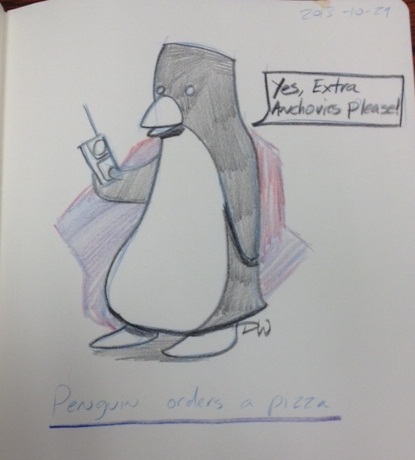 2013-10-29
Yes, Extra
Anchovies please!
DW
Penguin orders a pizza